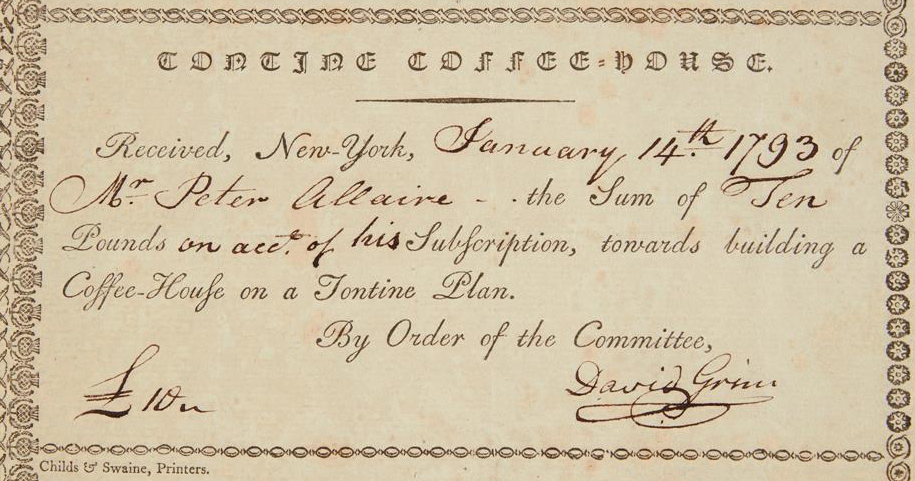 TONTINE COFFEE-HOUSE.
Received, New-York, January 14th. 1793 of
Mr. Peter Allaire - - the Sum of Ten
Pounds on acct. of his Subſcription, towards building a
Coffee-Houſe on a Tontine Plan.
By Order of the Committee,
£10 David Grim
Childs & Swaine, Printers.